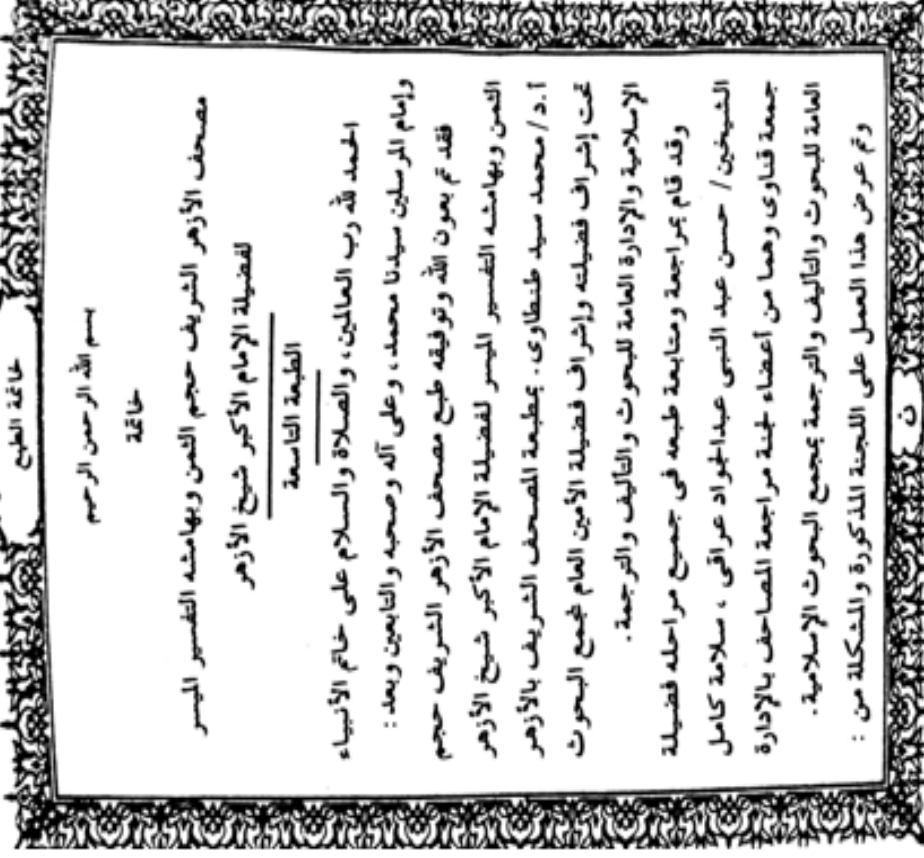 خاتمة الطبع
بسم الله الرحمن الرحيم
خاتمة
مصحف الأزهر الشريف حجم الثمن وبهامشه التفسير الميسر
لفضيلة الإمام الأكبر شيخ الأزهر
الطبعة التاسعة
الحمد لله رب العالمين، والصلاة والسلام على خاتم الأنبياء
وإمام المرسلين سيدنا محمد، وعلى آله وصحبه والتابعين وبعد :
فقد تم بعون الله وتوفيقه طبع مصحف الأزهر الشريف حجم
الثمن وبهامشه التفسير الميسر لفضيلة الإمام الأكبر شيخ الأزهر
أ.د/ محمد سيد طنطاوى. بمطبعة المصحف الشريف بالأزهر
تحت إشراف فضيلته وإشراف فضيلة الأمين العام لمجمع البحوث
الإسلامية والإدارة العامة للبحوث والتأليف والترجمة.
وقد قام بمراجعة ومتابعة طبعه فى جميع مراحله فضيلة
الشيخين/ حسن عبد النبى عبدالجواد عراقى ، سلامة كامل
جمعة قناوى وهما من أعضاء لجنة مراجعة المصاحف بالإدارة
العامة للبحوث والتأليف والترجمة بمجمع البحوث الإسلامية.
وتم عرض هذا العمل على اللجنة المذكورة والمشكلة من :
ن